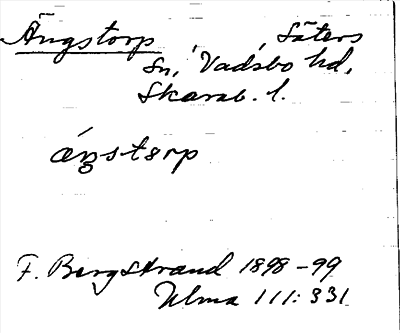 Ängstorp Säters
Sn, Vadsbo hd,
Skarab. l.
ängstorp
F. Bergstrand 1898-99
Ulma 111: 331